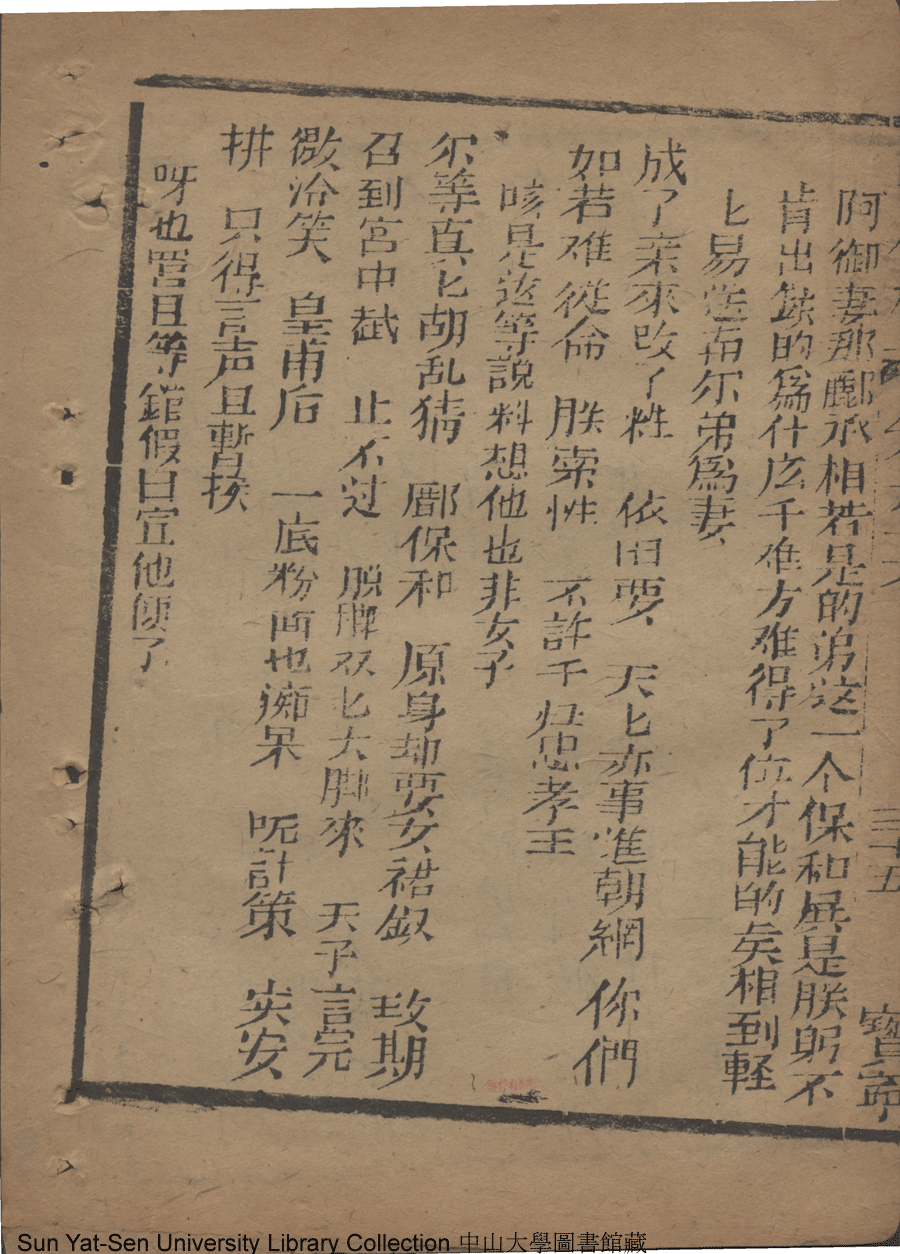 三十五
寶寧
阿御妻那酈承相若是的弟这一个保和展是朕躬不
肯出餘的爲什庅千难方难得了位才能的矣相到軽
匕易送有尔弟爲妻
成了亲來改了性 依旧要 天匕亦事進朝網 你們
如若难從命 朕索性 不許千归忠孝王
咳是这等說料想他也非女子
尔等真匕胡乱猜 酈保和 原身却要女裙釵 改期
召到宮中試 止不过 脱脚双匕大脚來 天子言完
微冷笑 皇甫后 一底粉面也痴呆 呢計策 安
排 只得言声且暫挨
呀也罷且等錯假日宣他便了
Sun Yat-Sen University Library Collection 中山大學圖書館藏